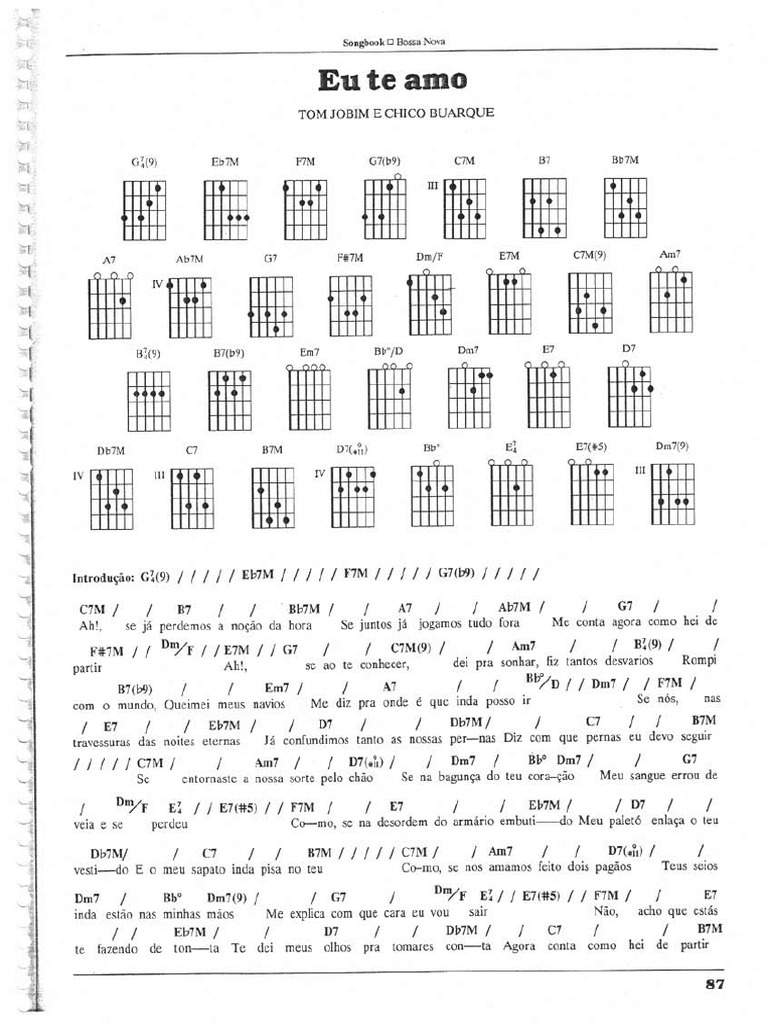 Songbook □ Bossa Nova
Eu te amo
TOM JOBIM E CHICO BUARQUE
G7/4(9) Eb7M F7M G7(b9) C7M B7 Bb7M
III
A7 Ab7M G7 F#7M Dm/F E7M C7M(9) Am7
IV
B7/4(9) B7(b9) Em7 Bb°/D Dm7 E7 D7
Db7M C7 B7M D7(9/#11) Bb° E7/4 E7(#5) Dm7(9)
IV III IV III
Introdução: G7/4(9) / / / / / Eb7M / / / / / F7M / / / / / G7(b9) / / / / /
C7M / / B7 / / Bb7M / / A7 / / Ab7M / / G7 / /
Ah!, se já perdemos a noção da hora Se juntos já jogamos tudo fora Me conta agora como hei de
F#7M / / Dm/F / / E7M / / G7 / / C7M(9) / / Am7 / / B7/4(9) / /
partir Ah!, se ao te conhecer, dei pra sonhar, fiz tantos desvarios Rompi
B7(b9) / / Em7 / / A7 / / Bb°/D / / Dm7 / / F7M /
com o mundo, Queimei meus navios Me diz pra onde é que inda posso ir Se nós, nas
/ E7 / / Eb7M / / D7 / / Db7M / / C7 / / B7M
travessuras das noites eternas Já confundimos tanto as nossas per-nas Diz com que pernas eu devo seguir
/ / / / / C7M / / Am7 / / D7(9/#11) / / Dm7 / Bb° Dm7 / / G7
Se entornaste a nossa sorte pelo chão Se na bagunça do teu cora-ção Meu sangue errou de
/ Dm/F E7/4 / / E7(#5) / / F7M / / E7 / / Eb7M / / D7 / /
veia e se perdeu Co-mo, se na desordem do armário embuti—do Meu paletó enlaça o teu
Db7M/ / C7 / / B7M / / / / / C7M / / Am7 / / D7(9/#11) / /
vesti—do E o meu sapato inda pisa no teu Co-mo, se nos amamos feito dois pagãos Teus seios
Dm7 / Bb° Dm7(9) / / G7 / Dm/F E7/4 / / E7(#5) / / F7M / / E7
inda estão nas minhas mãos Me explica com que cara eu vou sair Não, acho que estás
/ / Eb7M / / D7 / / Db7M / / C7 / / B7M
te fazendo de ton—ta Te dei meus olhos pra tomares con—ta Agora conta como hei de partir
87